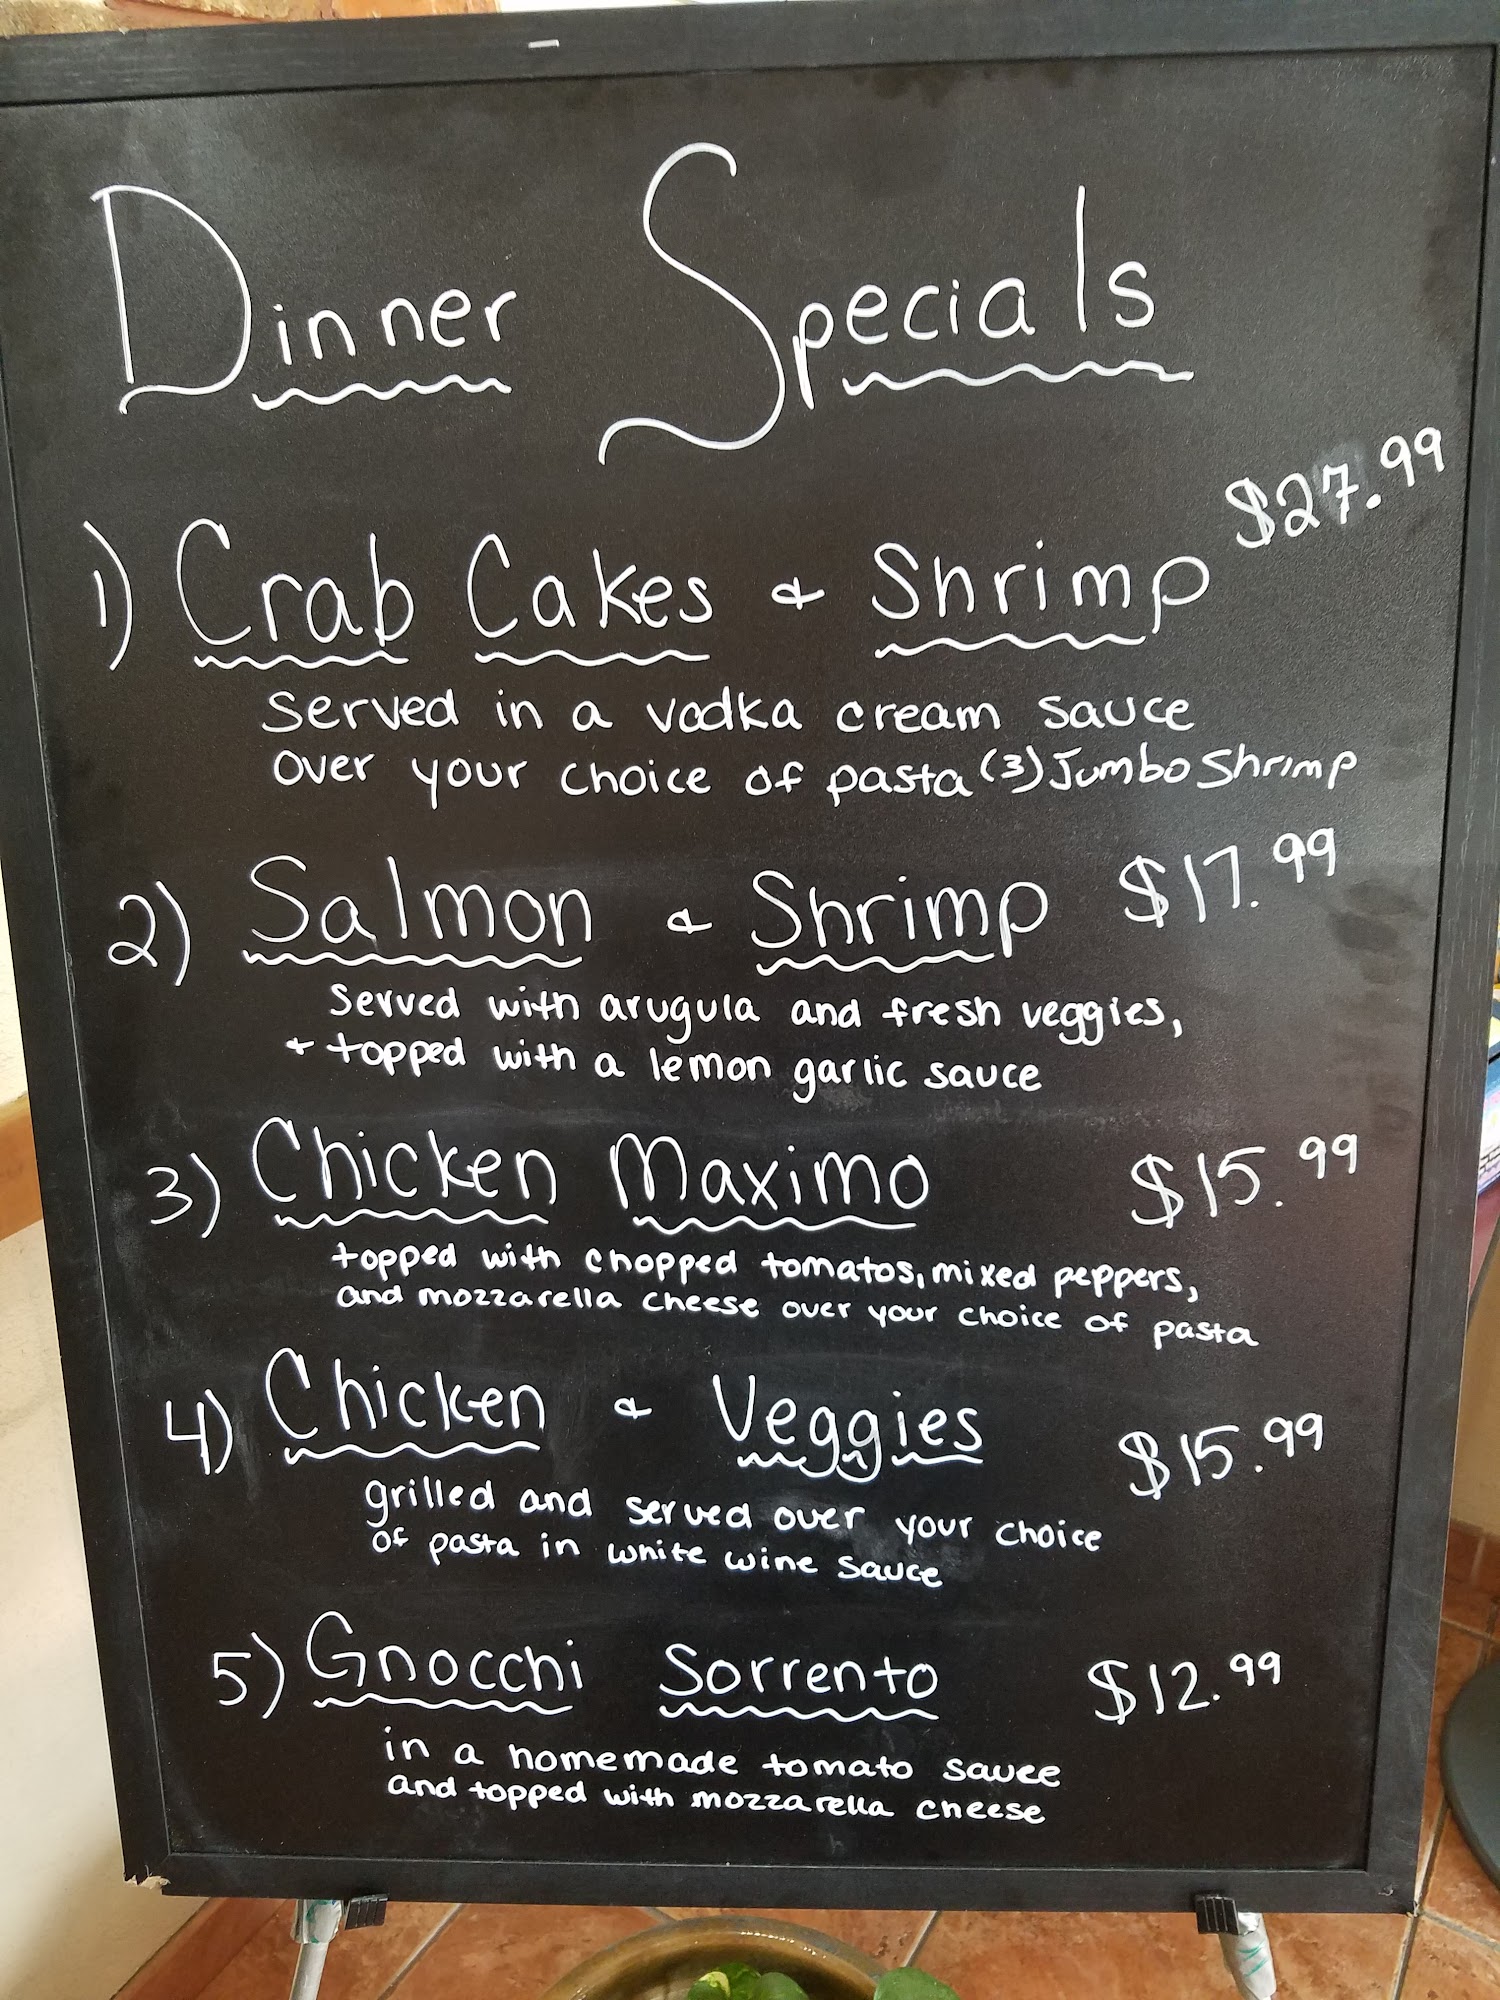 Dinner Specials
1) Crab Cakes & Shrimp $27.99
served in a vodka cream sauce
over your choice of pasta (3) Jumbo Shrimp
2) Salmon & Shrimp $17.99
served with arugula and fresh veggies,
+ topped with a lemon garlic sauce
3) Chicken Maximo $15.99
topped with chopped tomatos, mixed peppers,
and mozzarella cheese over your choice of pasta
4) Chicken & Veggies $15.99
grilled and served over your choice
of pasta in white wine sauce
5) Gnocchi Sorrento $12.99
in a homemade tomato sauce
and topped with mozzarella cheese